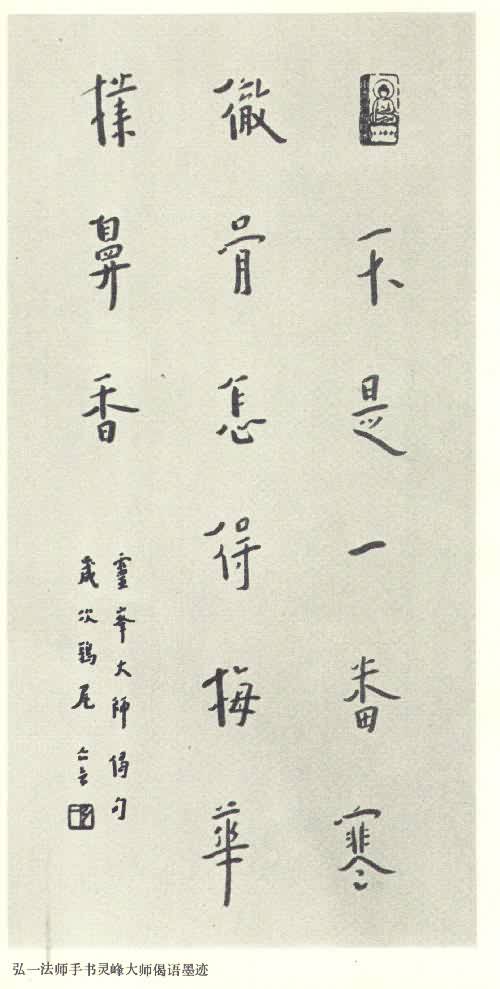 不是一番寒
徹骨怎得梅華
撲鼻香
靈峯大師偈句
歲次鶉尾 亡言
弘一法师手书灵峰大师偈语墨迹